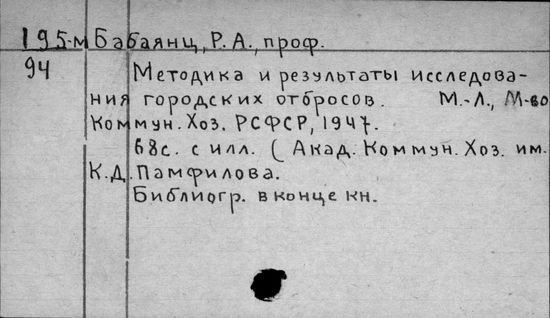 195-м Бабаянц, Р. А., проф.
94 Методика и результаты исследова-
ния городских отбросов. М.-Л., М-во
Коммун. Хоз. РСФСР, 1947.
68с. с илл. (Акад. Коммун. Хоз. им.
К.Д. Памфилова.
Библиогр. в конце кн.